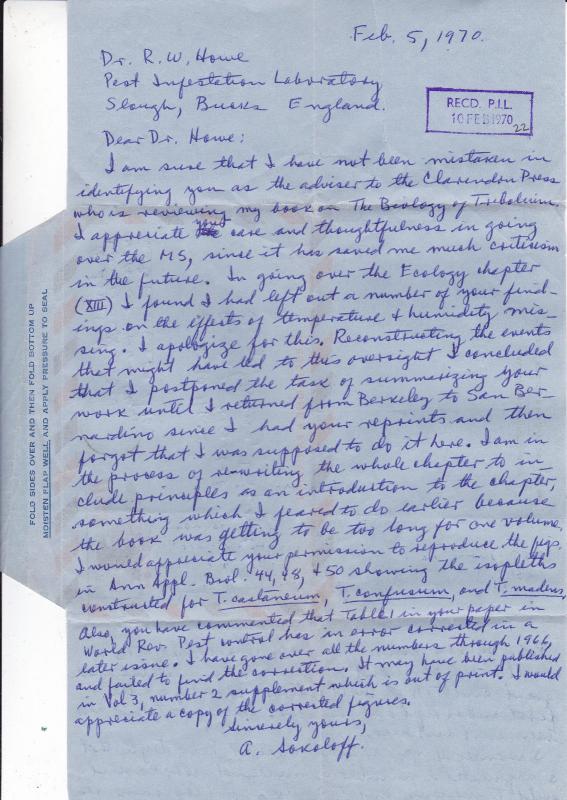 Feb. 5, 1970.
Dr. R. W. Howe
Pest Infestation Laboratory
Slough, Bucks England.
RECD. P.I.L.
10 FEB 1970
22
Dear Dr. Howe:
I am sure that I have not been mistaken in
identifying you as the adviser to the Clarendon Press
who is reviewing my book on The Biology of Tribolium.
I appreciate your care and thoughtfulness in going
over the MS, since it has saved me much criticism
in the future. In going over the Ecology chapter
(XIII) I found I had left out a number of your find-
ings on the effects of temperature & humidity mis-
sing. I apologize for this. Reconstructing the events
that might have led to this oversight I concluded
that I postponed the task of summarizing your
work until I returned from Berkeley to San Ber-
nardino since I had your reprints and then
forgot that I was supposed to do it here. I am in
the process of re-writing the whole chapter to in-
clude principles as an introduction to the chapter,
something which I feared to do earlier because
the book was getting to be too long for one volume.
I would appreciate your permission to reproduce the figs
in Ann Appl. Biol. 44, 48, & 50 showing the isopleths
constructed for T. castaneum, T. confusum, and T. madens.
Also, you have commented that Table 1 in your paper in
World Rev. Pest control has in error corrected in a
later issue. I have gone over all the numbers through 1966,
and failed to find the correction. It may have been published
in Vol 3, number 2 supplement which is out of print. I would
appreciate a copy of the corrected figures.
Sincerely yours,
A. Sokoloff.
FOLD SIDES OVER AND THEN FOLD BOTTOM UP
MOISTEN FLAP WELL AND APPLY PRESSURE TO SEAL